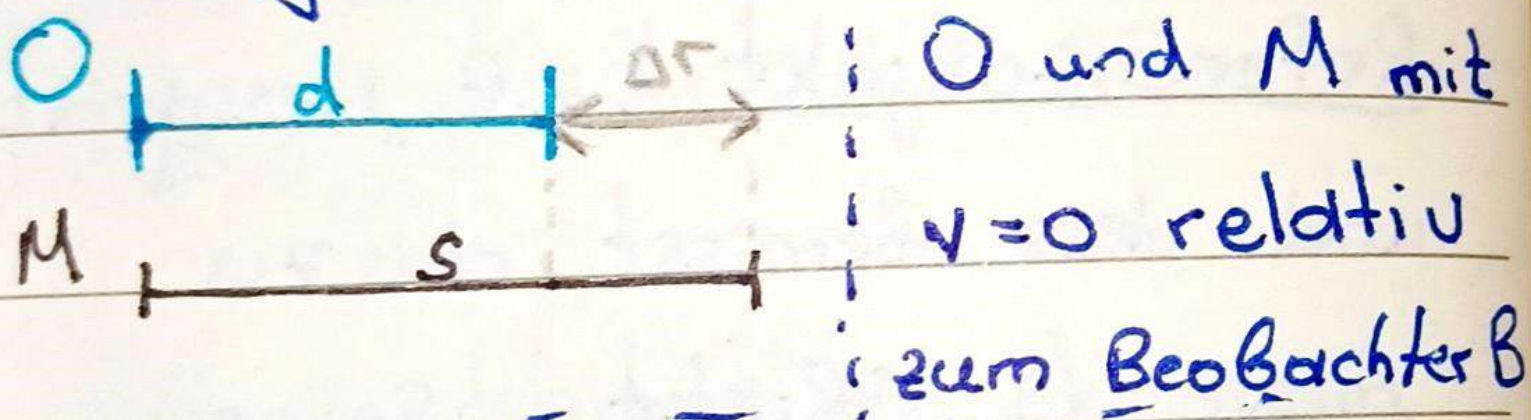 O d Δr O und M mit
M s v=0 relativ
zum Beobachter B